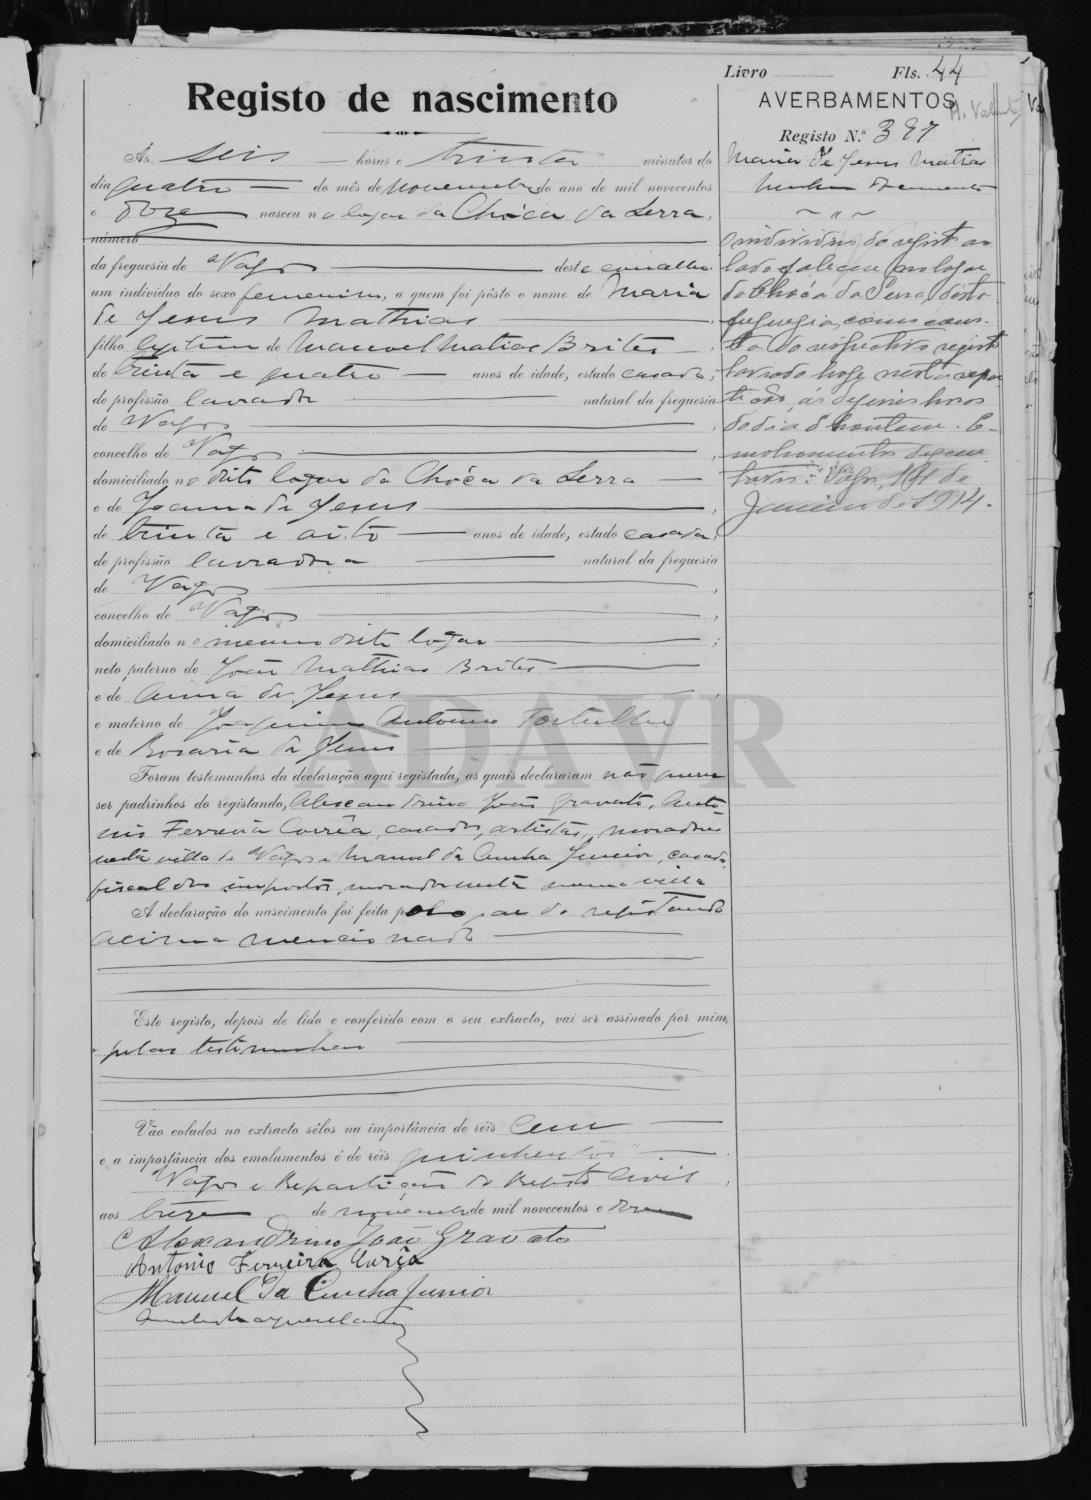 Livro Fls. 44
Registo de nascimento
AVERBAMENTOS
Registo N.º 397
Ás seis horas e trinta minutos do
dia quatro do mês de novembro do ano de mil novecentos
e doze nasceu no logar da Chóca da Serra,
número
da freguesia de Vagos deste concelho
um individuo do sexo femenino, a quem foi pôsto o nome de Maria
de Jesus Mathias
filho legitimo de Manoel Matias Brites
de trinta e quatro anos de idade, estado casado,
de profissão lavrador natural da freguesia
de Vagos,
concelho de Vagos,
domiciliado no dito logar da Chóca da Serra
e de Joanna de Jesus,
de trinta e oito anos de idade, estado casada,
de profissão lavradora natural da freguesia
de Vagos,
concelho de Vagos,
domiciliado no mesmo dito logar;
neto paterno de João Mathias Brites
e de Anna de Jesus
e materno de Joaquim Antonio
e de Rosaria de Jesus
Foram testemunhas da declaração aqui registada, as quais declararam não querer
ser padrinhos do registando, Alexandrino João Gravato, Anto
nio Ferreira Corrêa, casados, artistas, moradores
nesta villa de Vagos e Manuel da Cunha Junior, casado,
fiscal dos impostos, morador nesta mesma villa
A declaração do nascimento foi feita pelo pae do registando
acima mencionado
Este registo, depois de lido e conferido com o seu extracto, vai ser assinado por mim,
e pelas testemunhas
Vão colados no extracto sêlos na importância de réis cem
e a importância dos emolumentos é de réis quinhentos
Vagos e Repartição do Registo Civil,
aos treze de novembro de mil novecentos e doze
Alexandrino João Gravato
Antonio Ferreira Corrêa
Manuel da Cunha Junior
Maria de Jesus Matias
O individuo do registo ao
lado faleceu no logar
da Chóca da Serra, desta
freguesia, como cons-
ta do respectivo registo
lavrado hoje nesta repar
tição, ás horas
do dia d'hontem. E-
molumentos
Vagos, 14 de
Janeiro de 1914.
ADAVR